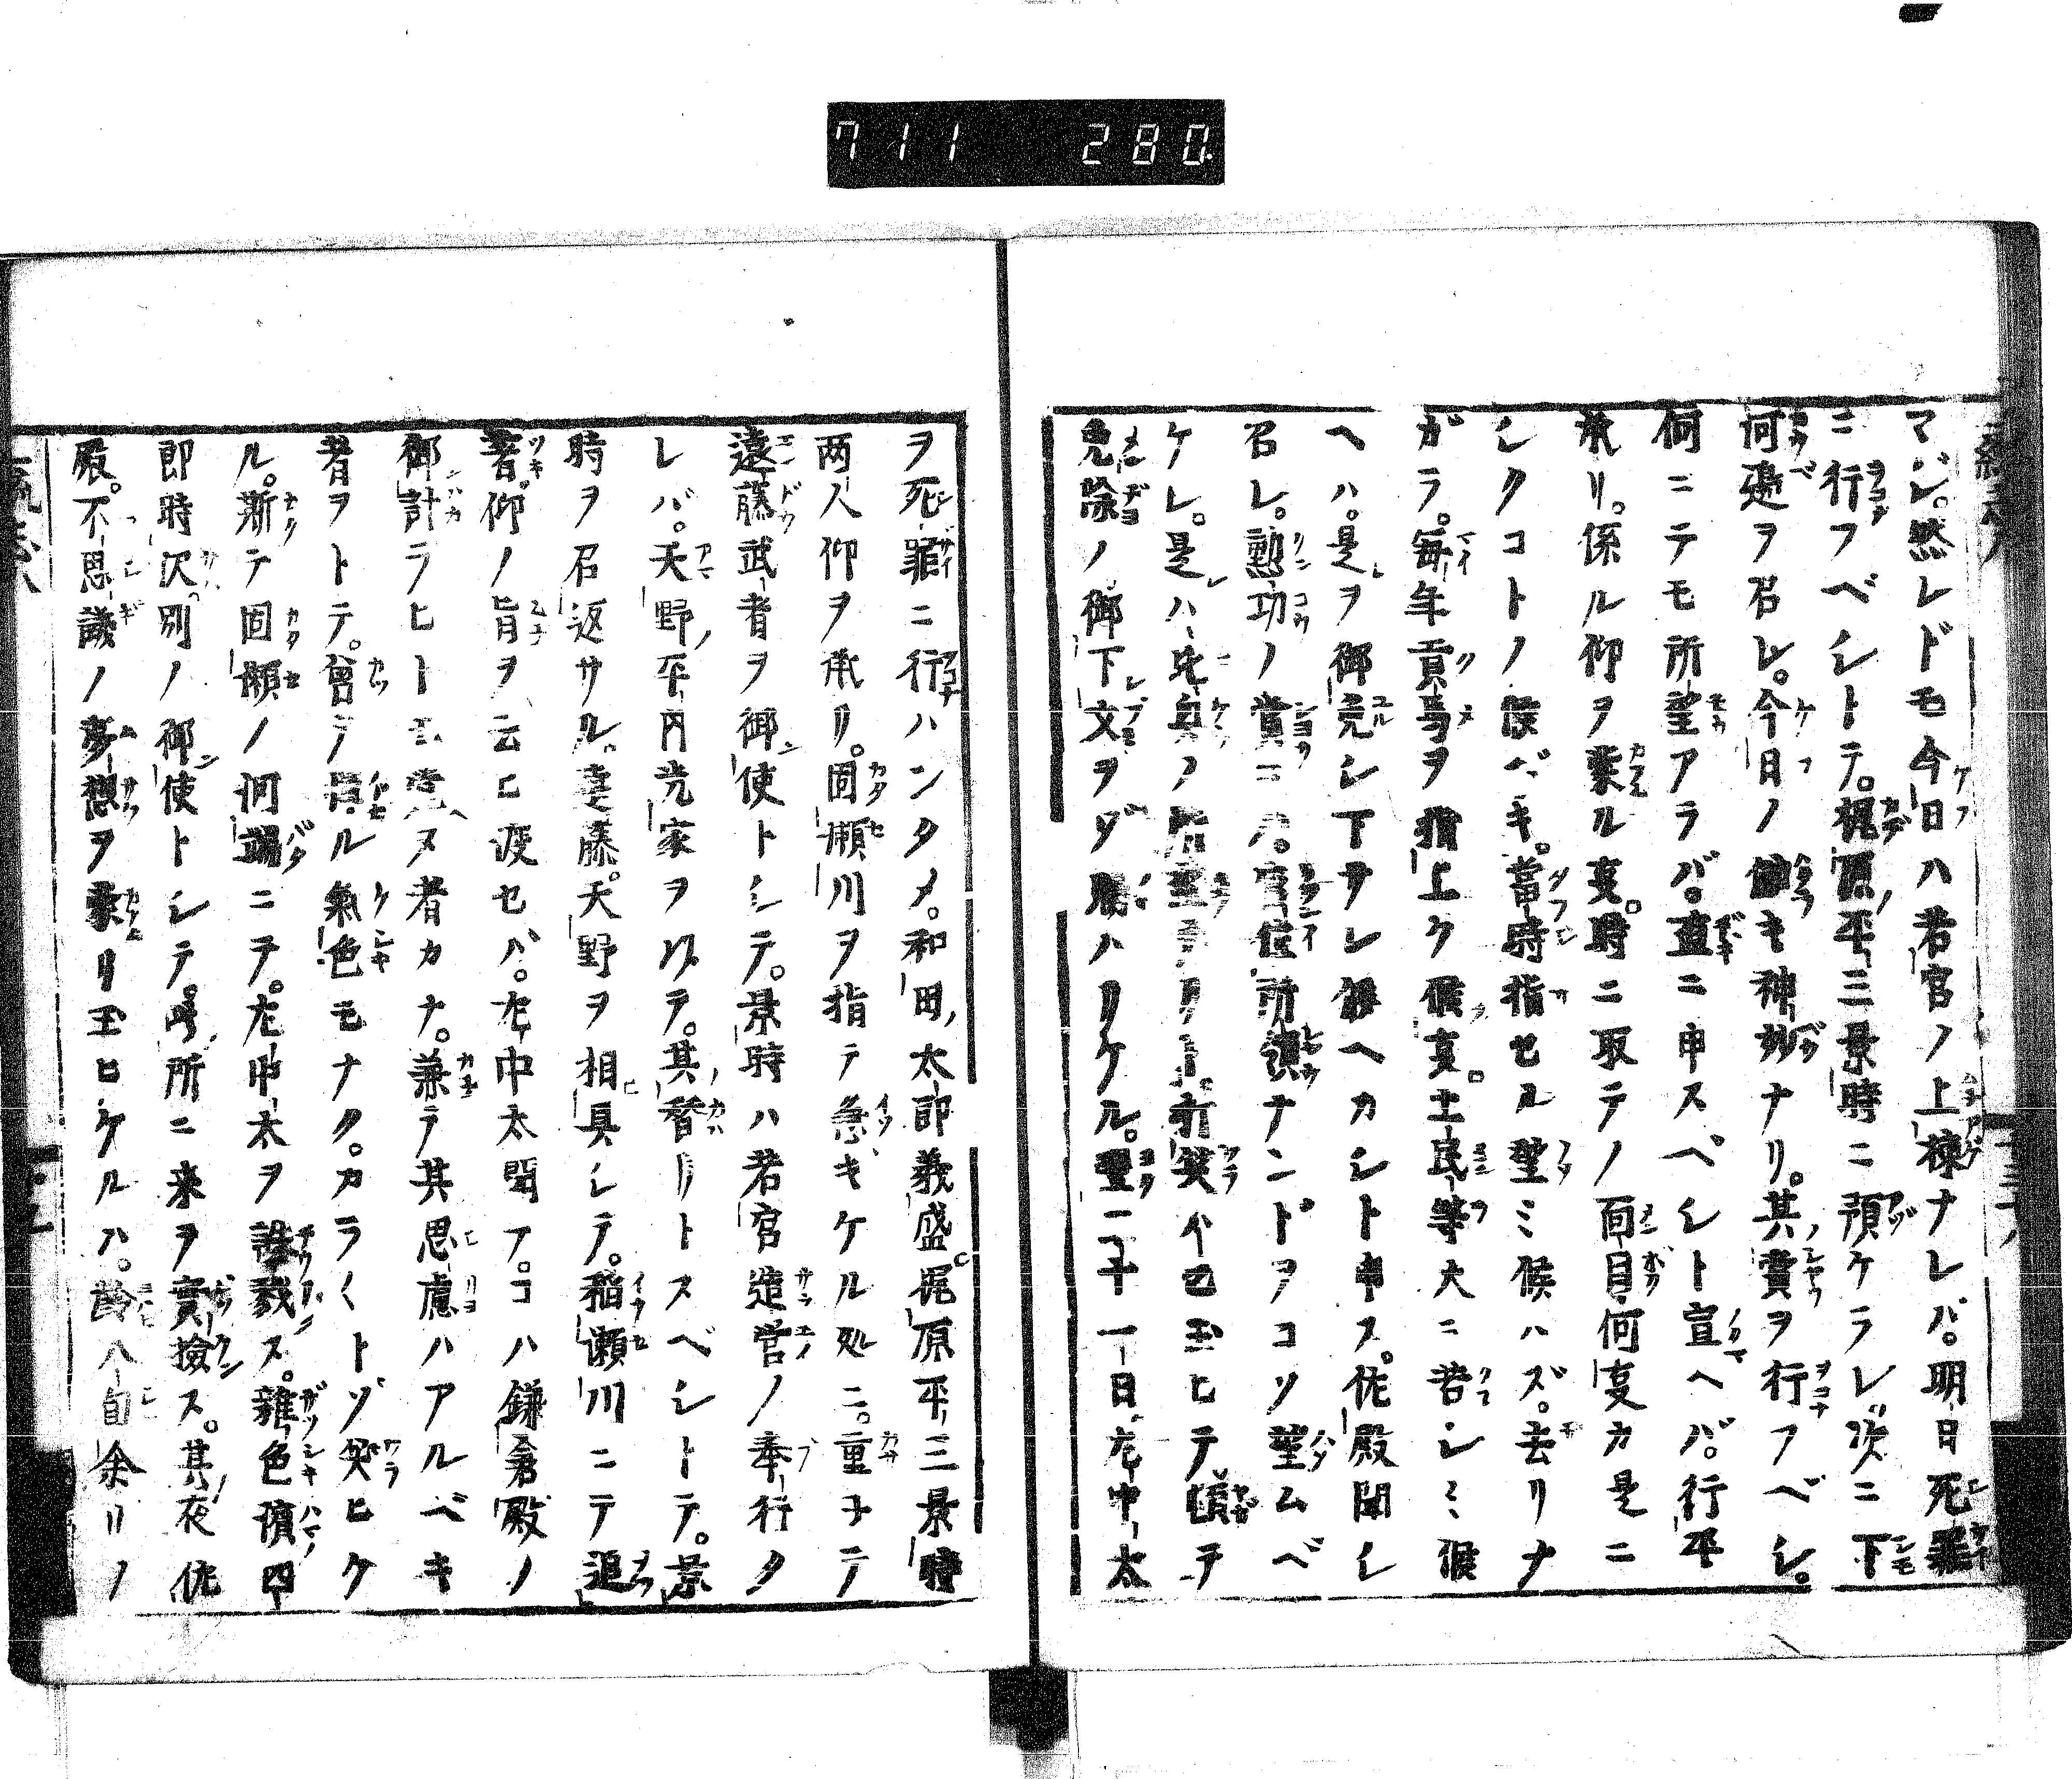 711 280
マジ。然レドモ今日ハ若宮ノ上棟ナレバ。明日死罪
ニ行フベシトテ。梶原平三景時ニ預ケラレ。次ニ下
河邉ヲ召レ。今日ノ働キ神妙ナリ。其賞ヲ行フベシ。
何ニテモ所望アラバ。直ニ申スベシト宣ヘバ。行平
承リ。係ル仰ヲ蒙ル夏。時ニ取テノ面目何夏カ是ニ
シクコトノ候ベキ。當時指セル望ミ候ハズ。去リナ
ガラ。毎年貢馬ヲ指上ク候夏。土民等大ニ苦シミ候
ヘハ。是ヲ御免シ下サレ候ヘカシト申ス。佐殿聞シ
召レ。勲功ノ賞ニハ。官位所領ナンドヲコソ望ムベ
ケレ。是ハ比興ノ所望ナリト。打笑ヰ玉ヒテ。頓テ
免除ノ御下文ヲゾ賜ハリケル。翌二十一日左中太
ヲ死罪ニ行ハンタメ。和田太郎義盛。梶原平三景時
両人仰ヲ承リ。固瀬川ヲ指テ急ギケル処ニ。重子テ
遠藤武者ヲ御使トシテ。景時ハ若宮造営ノ奉行タ
レバ。天野平内光家ヲ以テ。其替リトスベシトテ。景
時ヲ召返サル。遠藤。天野ヲ相具シテ。稲瀬川ニテ追
著。仰ノ旨ヲ云ヒ渡セバ。左中太聞テ。コハ鎌倉殿ノ
御計ラヒトモ覚ヌ者カナ。兼テ其思慮ハアルベキ
者ヲトテ。曾テ屓ル氣色モナク。カラ〱トゾ笑ヒケ
ル。斯テ固瀬ノ河端ニテ。左中太ヲ誅戮ス。雑色濱四
即時沢。別ノ御使トシテ。此所ニ来ヲ實撿ス。其夜佐
殿。不思議ノ夢想ヲ蒙リ玉ヒケルハ。齢八旬余リノ